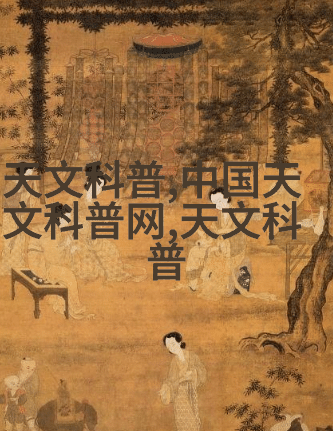 天文科普,中国天
文科普网,天文科
普